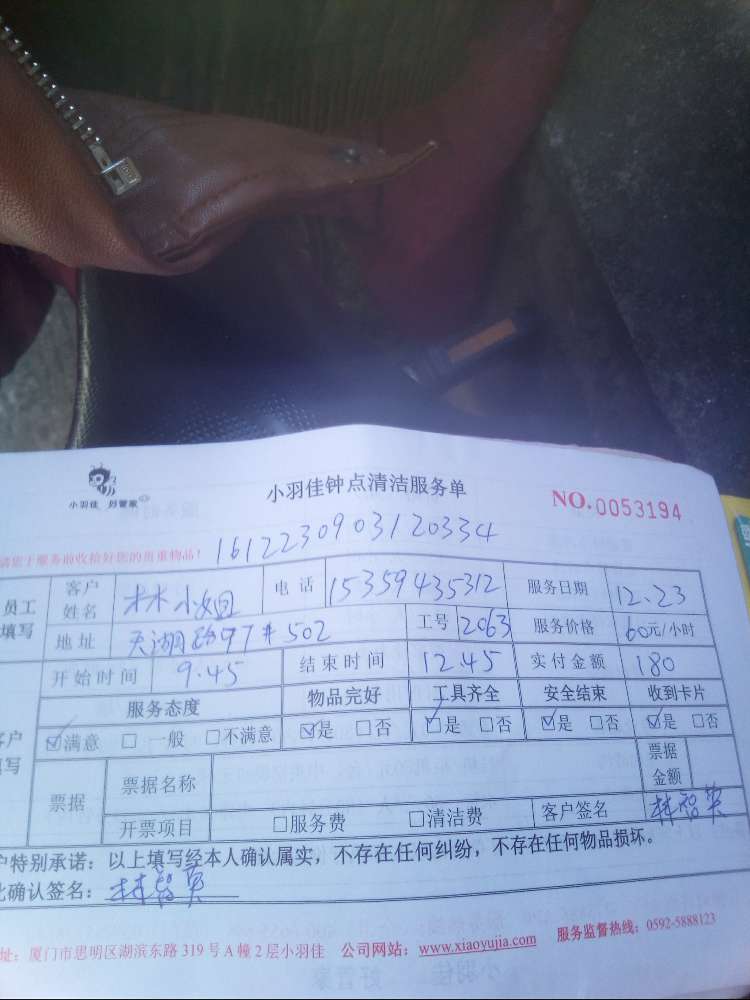 小羽佳 好管家
小羽佳钟点清洁服务单
NO.0053194
请您于服务前收拾好您的贵重物品！
161223090312 0334
员工填写 客户姓名 林小姐 电话 15359435312 服务日期 12.23
地址 天湖路97#502 工号 2063 服务价格 60元/小时
开始时间 9.45 结束时间 12.45 实付金额 180
服务态度 物品完好 工具齐全 安全结束 收到卡片
☑满意 □一般 □不满意 ☑是 □否 ☑是 □否 ☑是 □否 ☑是 □否
票据 票据名称 票据金额
开票项目 □服务费 □清洁费 客户签名 林智英
户特别承诺：以上填写经本人确认属实，不存在任何纠纷，不存在任何物品损坏。
此确认签名：林智英
址：厦门市思明区湖滨东路319号A幢2层小羽佳 公司网站：www.xiaoyujia.com 服务监督热线：0592-5888123